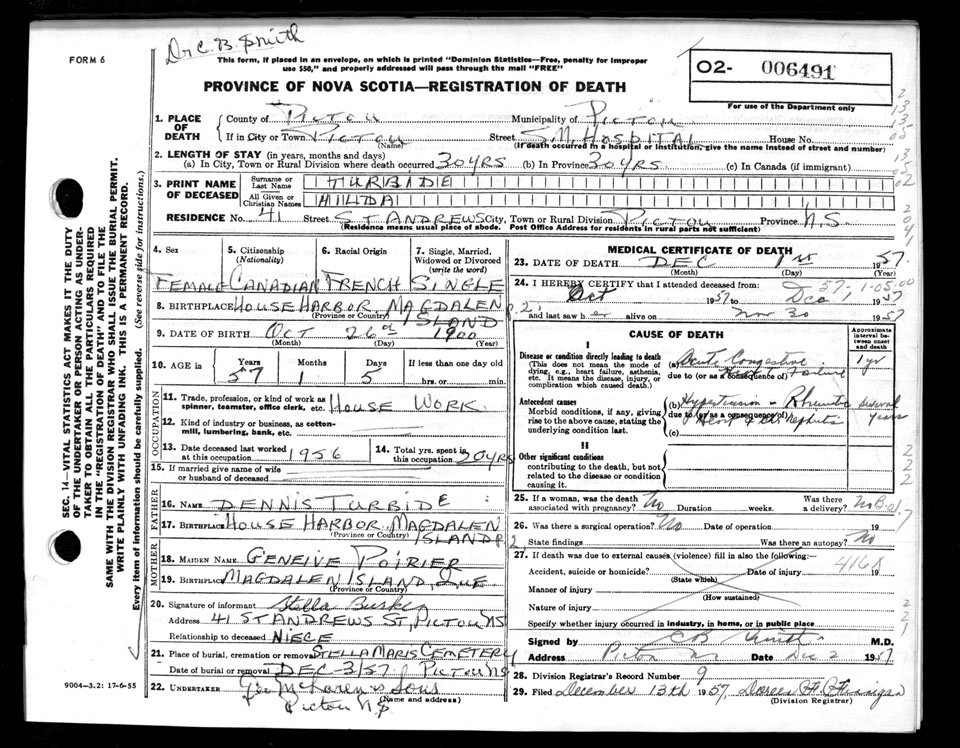 Dr C. B. Smith
FORM 6
This form, if placed in an envelope, on which is printed "Dominion Statistics—Free, penalty for improper
use $50," and properly addressed will pass through the mail "FREE"
O2- 006491
PROVINCE OF NOVA SCOTIA—REGISTRATION OF DEATH
For use of the Department only
1. PLACE OF DEATH
County of Pictou Municipality of Pictou
If in City or Town Pictou Street S M HOSPITAL House No.
(Name) (If death occurred in a hospital or institution, give the name instead of street and number)
2. LENGTH OF STAY (in years, months and days)
(a) In City, Town or Rural Division where death occurred 30 YRS (b) In Province 30 YRS. (c) In Canada (if immigrant)
3. PRINT NAME OF DECEASED
Surname or Last Name TURBIDE
All Given or Christian Names HILDA
RESIDENCE No. 41 Street ST ANDREWS City, Town or Rural Division Pictou Province N.S.
(Residence means usual place of abode. Post Office Address for residents in rural parts not sufficient)
4. Sex 5. Citizenship (Nationality) 6. Racial Origin 7. Single, Married, Widowed or Divorced (write the word)
FEMALE CANADIAN FRENCH SINGLE
8. BIRTHPLACE HOUSE HARBOR, MAGDALEN ISLAND
(Province or Country)
9. DATE OF BIRTH OCT 26 1900
(Month) (Day) (Year)
10. AGE in Years Months Days If less than one day old
57 1 5 hrs. or min.
OCCUPATION
11. Trade, profession, or kind of work as spinner, teamster, office clerk, etc. HOUSE WORK.
12. Kind of industry or business, as cotton-mill, lumbering, bank, etc.
13. Date deceased last worked at this occupation 1956
14. Total yrs. spent in this occupation 20 YRS
15. If married give name of wife or husband of deceased
FATHER
16. NAME DENNIS TURBIDE
17. BIRTHPLACE HOUSE HARBOR MAGDALEN ISLAND
(Province or Country)
MOTHER
18. MAIDEN NAME GENEIVE POIRIER
19. BIRTHPLACE MAGDALEN ISLAND, QUE
(Province or Country)
20. Signature of informant Stella Burke
Address 41 ST ANDREWS ST, PICTOU NS
Relationship to deceased NIECE
21. Place of burial, cremation or removal STELLA MARIS CEMETERY
Date of burial or removal DEC-3/57. PICTOU NS
22. UNDERTAKER Geo McLaren & Sons
Pictou NS (Name and address)
9004—3.2: 17-6-55
MEDICAL CERTIFICATE OF DEATH
23. DATE OF DEATH DEC 1st 1957.
(Month) (Day) (Year)
24. I HEREBY CERTIFY that I attended deceased from:
Oct 1957 to Dec 1 1957
and last saw her alive on Nov 30 1957
CAUSE OF DEATH
Approximate interval between onset and death
I
Disease or condition directly leading to death
(This does not mean the mode of dying, e.g., heart failure, asthenia, etc. It means the disease, injury, or complication which caused death.)
(a) Acute Congestive Heart Failure 1 yr
due to (or as a consequence of)
Antecedent causes
Morbid conditions, if any, giving rise to the above cause, stating the underlying condition last.
(b) Hypertension & Rheumatic Heart & Nephritis several years
due to (or as a consequence of)
(c)
II
Other significant conditions
contributing to the death, but not related to the disease or condition causing it.
25. If a woman, was the death associated with pregnancy? No Duration weeks. Was there a delivery? No
26. Was there a surgical operation? No Date of operation 19
State findings Was there an autopsy? No
27. If death was due to external causes (violence) fill in also the following:—
Accident, suicide or homicide? (State which) Date of injury 19
Manner of injury
(How sustained)
Nature of injury
Specify whether injury occurred in industry, in home, or in public place
Signed by CB Smith M.D.
Address Pictou NS Date Dec 2 1957
28. Division Registrar's Record Number 9
29. Filed December 13th 1957,
(Division Registrar)
SEC. 14—VITAL STATISTICS ACT MAKES IT THE DUTY
OF THE UNDERTAKER OR PERSON ACTING AS UNDER-
TAKER TO OBTAIN ALL THE PARTICULARS REQUIRED
IN THE "REGISTRATION OF DEATH" AND TO FILE THE
SAME WITH THE DIVISION REGISTRAR WHO SHALL ISSUE THE BURIAL PERMIT.
WRITE PLAINLY WITH UNFADING INK. THIS IS A PERMANENT RECORD.
Every item of information should be carefully supplied. (See reverse side for instructions.)